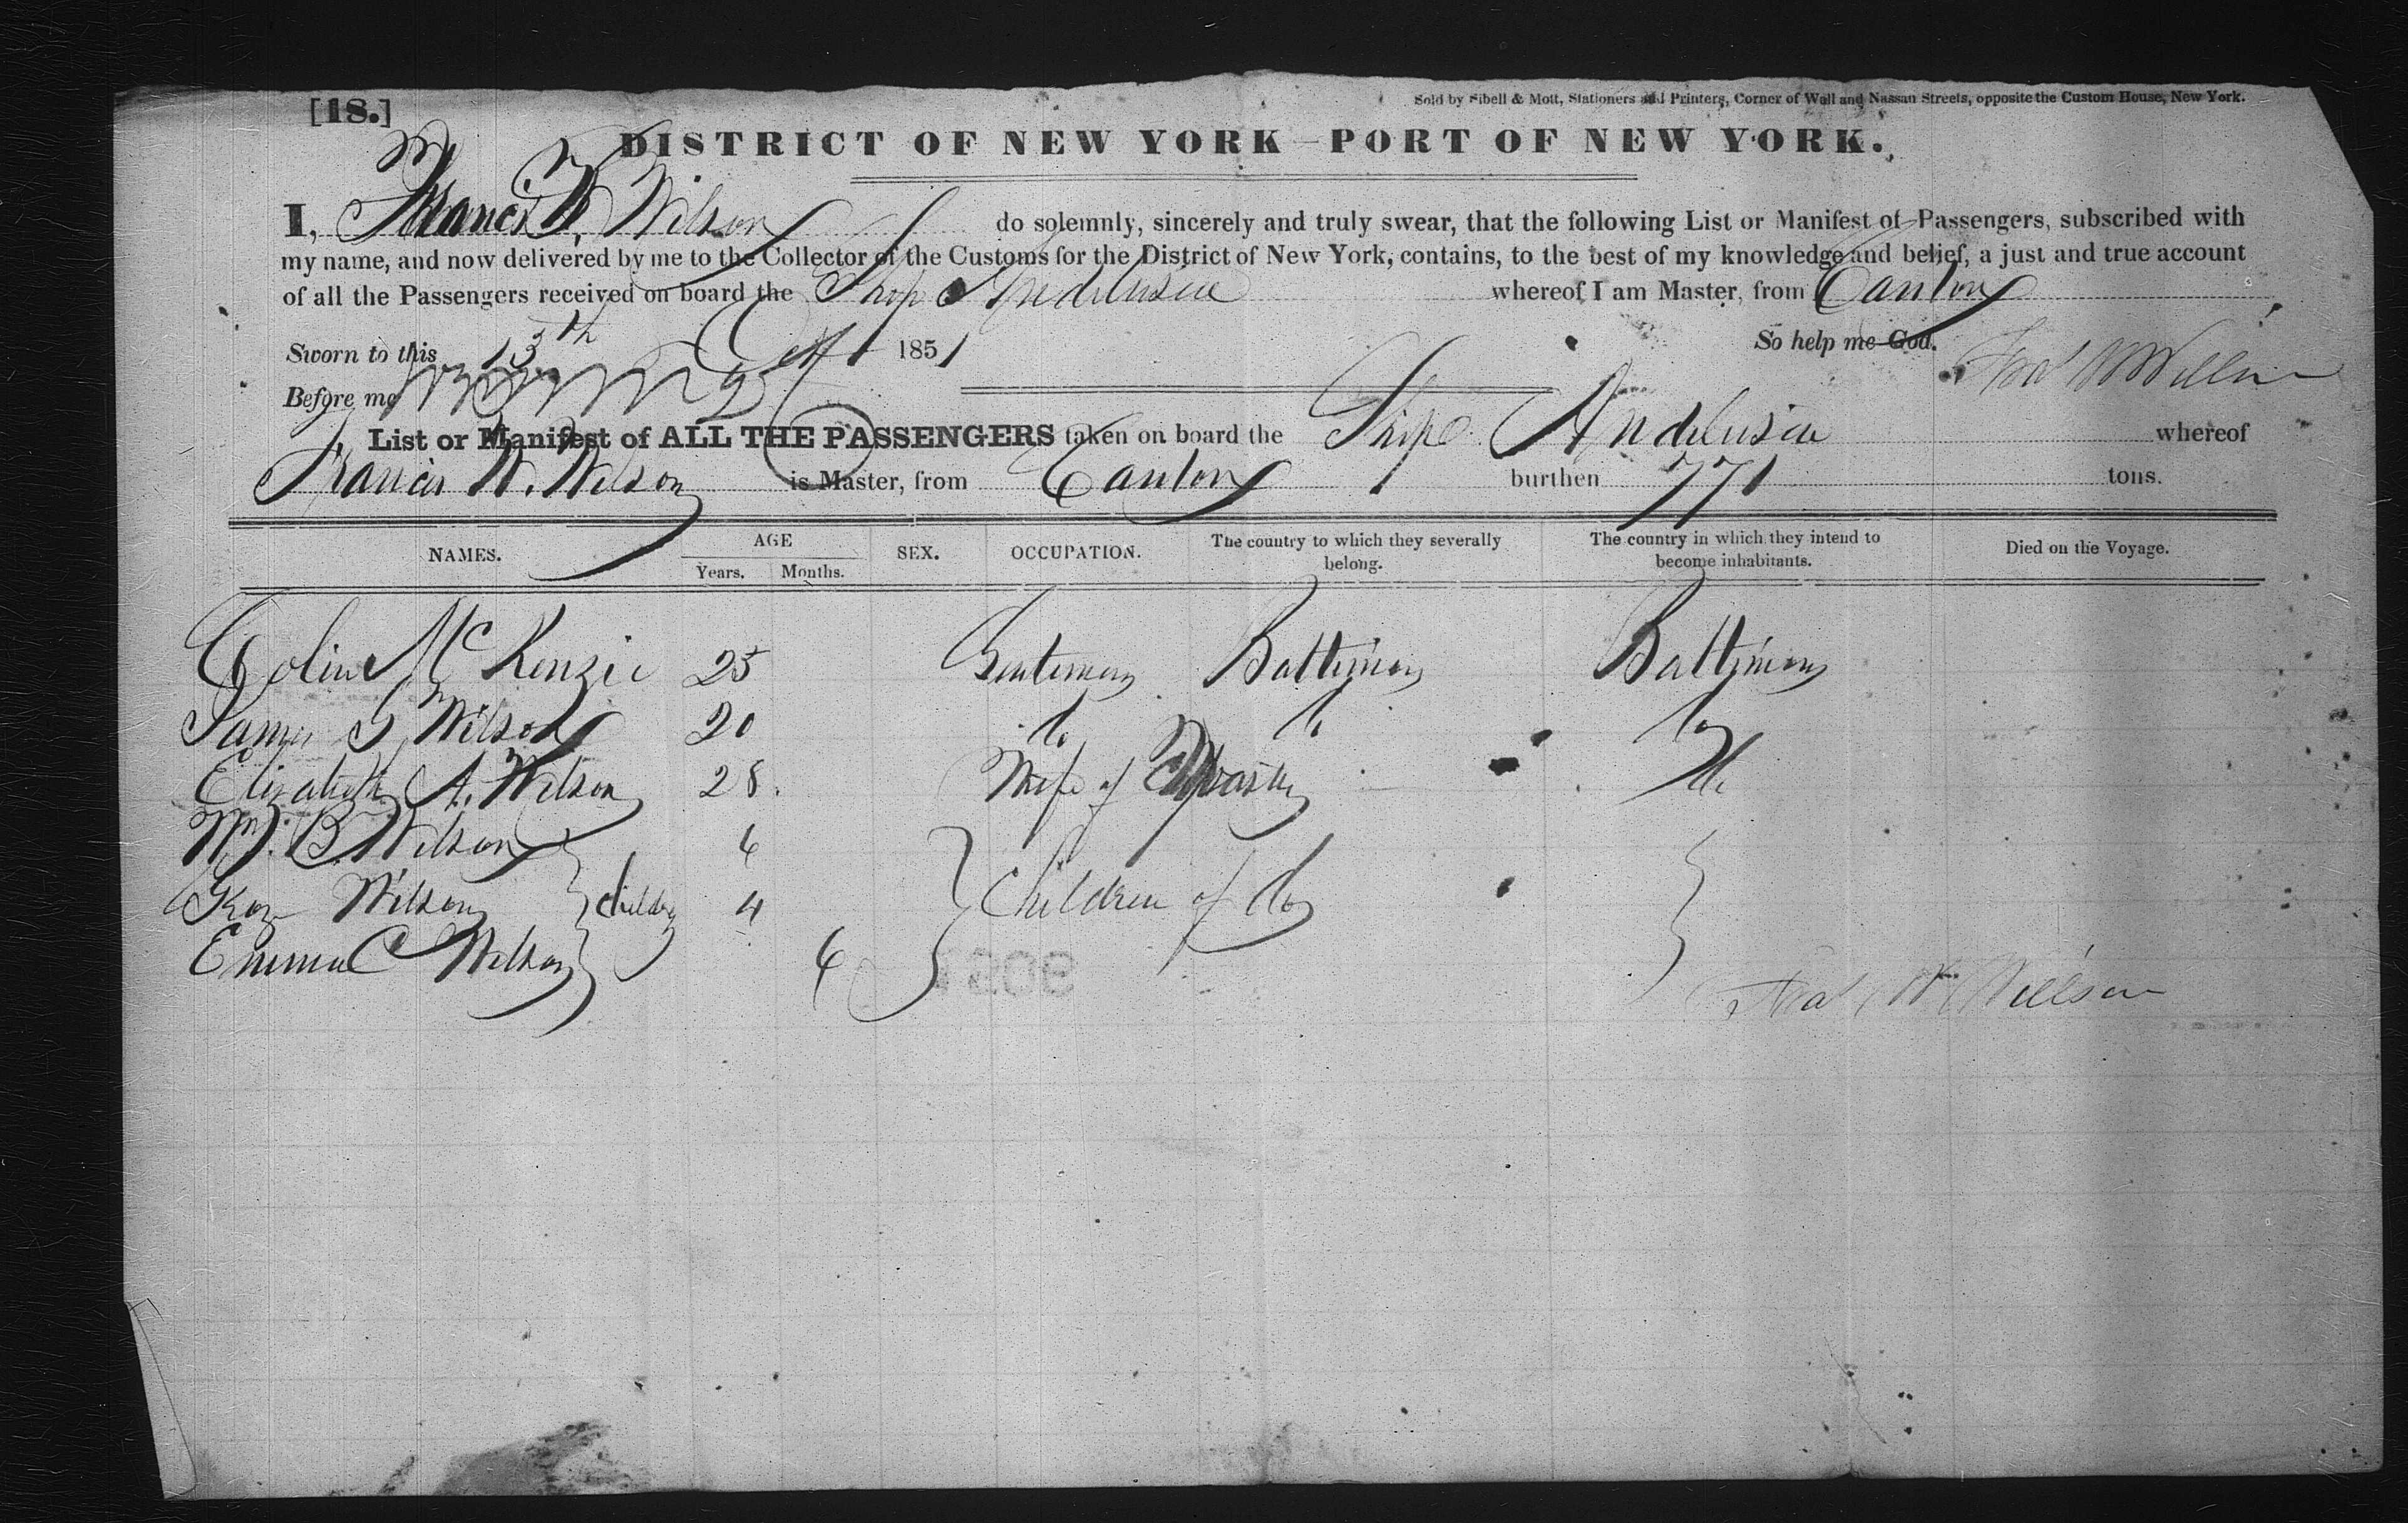 [18.]
Sold by Sibell & Mott, Stationers and Printers, Corner of Wall and Nassau Streets, opposite the Custom House, New York.
DISTRICT OF NEW YORK—PORT OF NEW YORK.
I, Francis W. Wilson do solemnly, sincerely and truly swear, that the following List or Manifest of Passengers, subscribed with
my name, and now delivered by me to the Collector of the Customs for the District of New York, contains, to the best of my knowledge and belief, a just and true account
of all the Passengers received on board the Ship Andelusia whereof I am Master, from Canton
Sworn to this 13th 1851 So help me God.
Before me
List or Manifest of ALL THE PASSENGERS taken on board the Ship Andelusia whereof
Francis W. Wilson is Master, from Canton burthen 771 tons.
NAMES. AGE Years. Months. SEX. OCCUPATION. The country to which they severally belong. The country in which they intend to become inhabitants. Died on the Voyage.
Colin Mc Kenzie 25 Gentleman Baltimore Baltimore
James S Wilson 20 do do do
Elizabeth A. Wilson 28. Wife of Master do
Wm. B. Wilson 6
Geo Wilson children 4 Children of do
Emma C Wilson 6
Fras W Willson